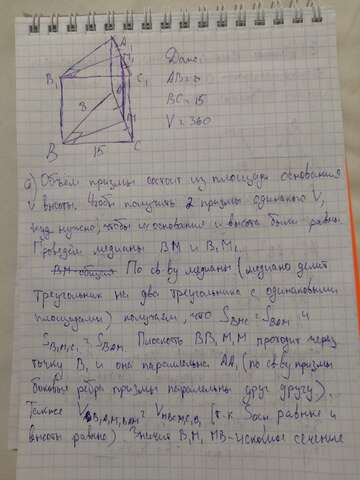 A
M₁
B₁
C₁
8
A
M
B
15
C
Дано:
AB = 8
BC = 15
V = 360
а) Объём призмы состоит из площади основания
и высоты. Чтобы получить 2 призмы одинакового V,
надо нужно, чтобы их основания и высота были равны
Проведём медианы BM и B₁M₁.
BM общая По св-ву медианы (медиана делит
треугольник на два треугольника с одинаковыми
площадями) получаем, что S BMC = S BAM и
S B₁M₁C₁ = S BAM. Плоскость BB₁M₁M проходит через
точку B₁ и она параллельна AA₁ (по св-ву призмы
боковые рёбра призмы параллельны друг другу).
Также V B₁A₁M₁BAM = V MBCM₁C₁B₁ (т.к Sосн равные и
высоты равные). Значит B₁M₁MB - искомое сечение